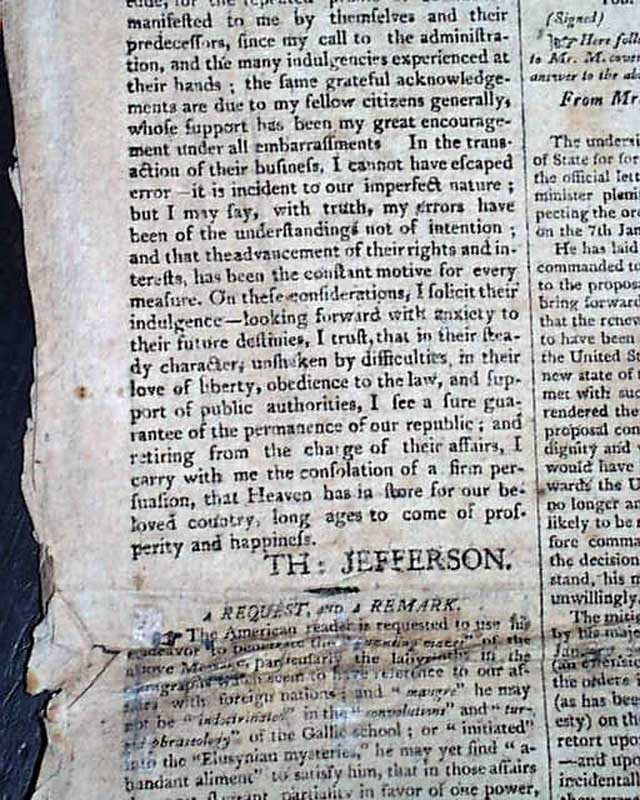 manifeſted to me by themſelves and their
predeceſſors, ſince my call to the adminiſtra-
tion, and the many indulgencies experienced at
their hands ; the ſame grateful acknowledge-
ments are due to my fellow citizens generally,
whoſe ſupport has been my great encourage-
ment under all embarraſſments In the trans-
action of their buſineſs, I cannot have eſcaped
error—it is incident to our imperfect nature ;
but I may ſay, with truth, my errors have
been of the underſtanding not of intention ;
and that the advancement of their rights and in-
tereſts, has been the conſtant motive for every
meaſure. On theſe conſiderations, I ſolicit their
indulgence—looking forward with anxiety to
their future deſtinies, I truſt, that in their ſtea-
dy character, unſhaken by difficulties, in their
love of liberty, obedience to the law, and ſup-
port of public authorities, I ſee a ſure gua-
rantee of the permanence of our republic ; and
retiring from the charge of their affairs, I
carry with me the conſolation of a firm per-
ſuaſion, that Heaven has in ſtore for our be-
loved country, long ages to come of proſ-
perity and happineſs.
TH: JEFFERSON.
A REQUEST, AND A REMARK.
☞ The American reader is requested to uſe his
endeavor to penetrate the of the
above Meſſage, particularly the labyrinth in the
paragraphs which ſeem to have reference to our af-
with foreign nations ; and " he may
not be "indoctrinated" in the "convolutions" and "tur-
phraseology" of the Gallic ſchool ; or "initiated"
into the "Eleusynian mysteries," he may yet find "a-
bundant aliment" to satisfy him, that in those affairs
partiality in favor of one power,
(Signed)
☞ Here follo
to Mr. M.
answer to the
From Mr.
The undersi
of State for for
the official lett
minister pleni
pecting the or
on the 7th Jan
He has laid
commanded to
to the proposa
bring forward
that the renew
to have been
the United St
new state of t
met with suc
rendered the
proposal con
dignity and
would have
wards the U
no longer an
likely to be
fore comma
the decision
stand, his m
unwillingly.
The mitig
by his maje
(an extensi
the orders i
(as has been
esty) on the
retort upon
—and upo
incidentall